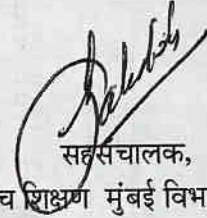 सहसंचालक,
च शिक्षण मुंबई विभ